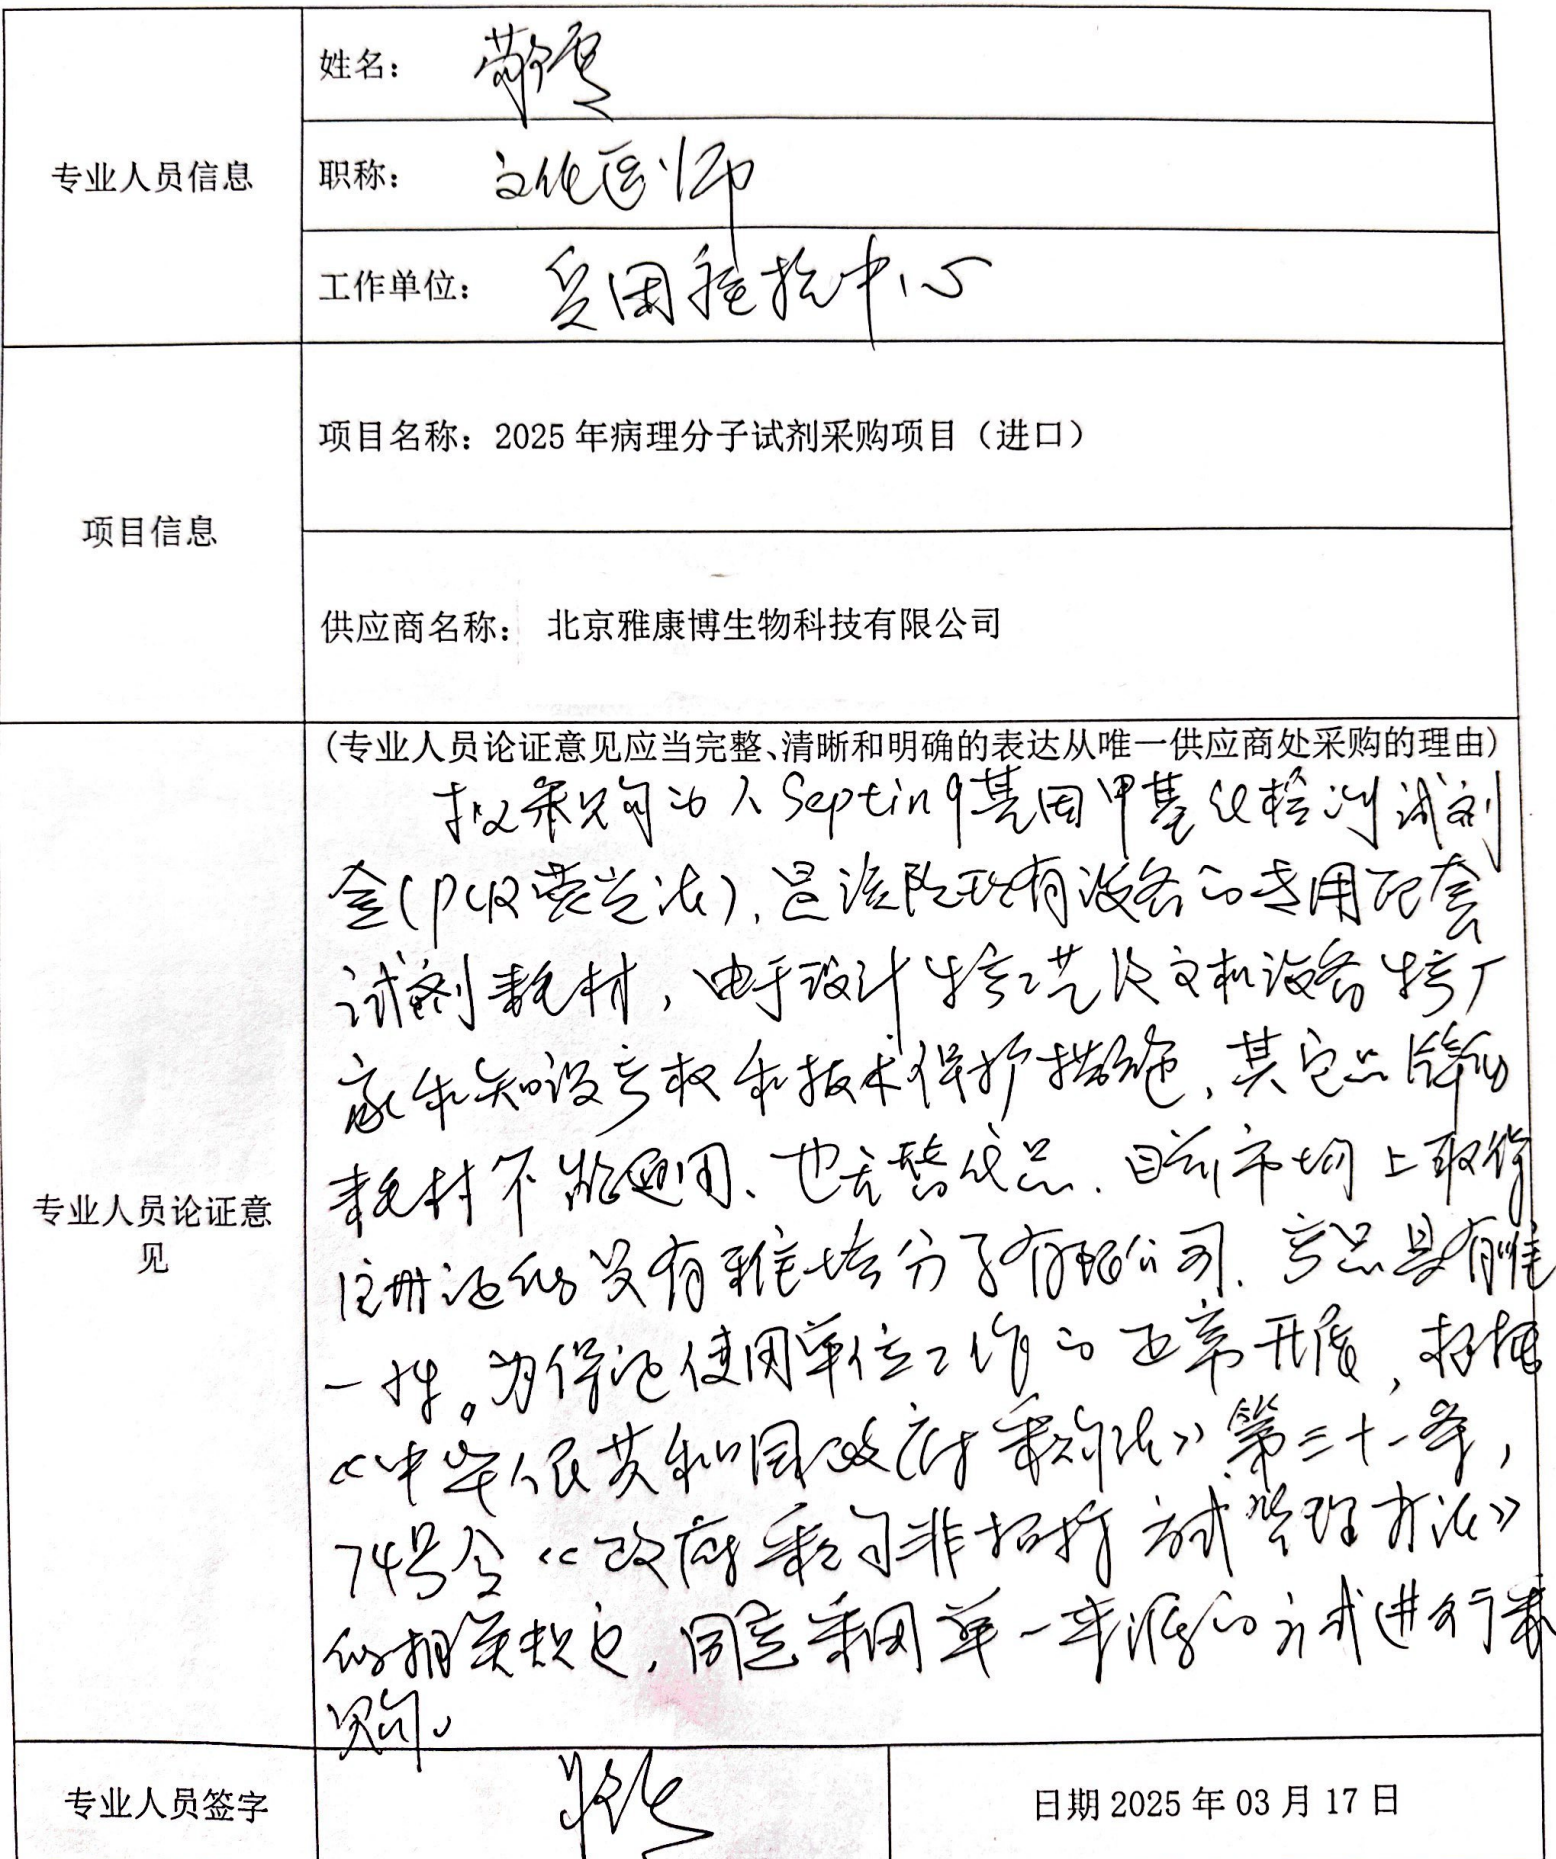 姓名：
专业人员信息
职称： 医师
工作单位： 中心
项目名称：2025年病理分子试剂采购项目（进口）
项目信息
供应商名称： 北京雅康博生物科技有限公司
(专业人员论证意见应当完整、清晰和明确的表达从唯一供应商处采购的理由)
拟采购的人Septin9基因甲基化检测试剂
盒(PCR荧光法),是该院现有设备的专用配套
试剂耗材,由于设计生产工艺及文机设备生产厂
家和知识产权和技术保护措施,其它品牌的
耗材不能通用、也无替代品.目前市场上取得
注册证的只有雅培分子有限公司.产品具有唯
一性。为保证使用单位工作的正常开展,根据
《中华人民共和国政府采购法》第三十一条,
74号令《政府采购非招标方式管理办法》
的相关规定,同意采用单一来源的方式进行采
购。
专业人员论证意
见
专业人员签字
日期 2025年03月17日